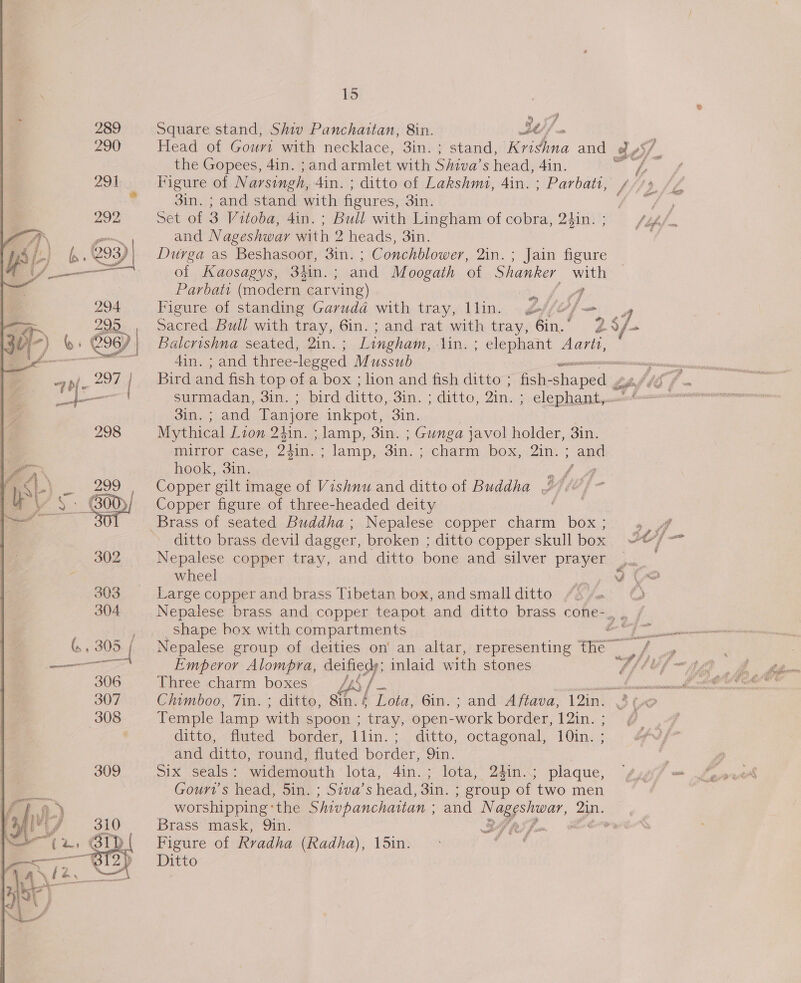 15
289 Square stand, Shiv Panchaitan, 8in.
290 Head of Gouri with necklace, 3in. ; stand, Krishna and
the Gopees, 4in. ; and armlet with Shiva's head, 4in.
291 Figure of Narsingh, 4in. ; ditto of Lakshmi, 4in. ; Parbati,
3in. ; and stand with figures, 3in.
292 Set of 3 Vitoba, 4in. ; Bull with Lingham of cobra, 2½in. ;
and Nageshwar with 2 heads, 3in.
293 Durga as Beshasoor, 3in. ; Conchblower, 2in. ; Jain figure
of Kaosagys, 3½in. ; and Moogath of Shanker with
Parbati (modern carving)
294 Figure of standing Garuda with tray, 11in.
295 Sacred Bull with tray, 6in. ; and rat with tray, 6in.
296 Balcrishna seated, 2in. ; Lingham, 1in. ; elephant Aarti,
4in. ; and three-legged Mussub
297 Bird and fish top of a box ; lion and fish ditto ; fish-shaped
surmadan, 3in. ; bird ditto, 3in. ; ditto, 2in. ; elephant,
3in. ; and Tanjore inkpot, 3in.
298 Mythical Lion 2½in. ; lamp, 3in. ; Gunga javol holder, 3in.
mirror case, 2½in. ; lamp, 3in. ; charm box, 2in. ; and
hook, 3in.
299 Copper gilt image of Vishnu and ditto of Buddha
300 Copper figure of three-headed deity
301 Brass of seated Buddha ; Nepalese copper charm box ;
ditto brass devil dagger, broken ; ditto copper skull box
302 Nepalese copper tray, and ditto bone and silver prayer
wheel
303 Large copper and brass Tibetan box, and small ditto
304 Nepalese brass and copper teapot and ditto brass cone-
shape box with compartments
305 Nepalese group of deities on an altar, representing the
Emperor Alompra, deified; inlaid with stones
306 Three charm boxes
307 Chimboo, 7in. ; ditto, 8in. ; Lota, 6in. ; and Aftava, 12in.
308 Temple lamp with spoon ; tray, open-work border, 12in. ;
ditto, fluted border, 11in. ; ditto, octagonal, 10in. ;
and ditto, round, fluted border, 9in.
309 Six seals : widemouth lota, 4in. ; lota, 2½in. ; plaque,
Gouri's head, 5in. ; Siva's head, 3in. ; group of two men
worshipping the Shivpanchaitan ; and Nageshwar, 2in.
310 Brass mask, 9in.
311 Figure of Rradha (Radha), 15in.
312 Ditto